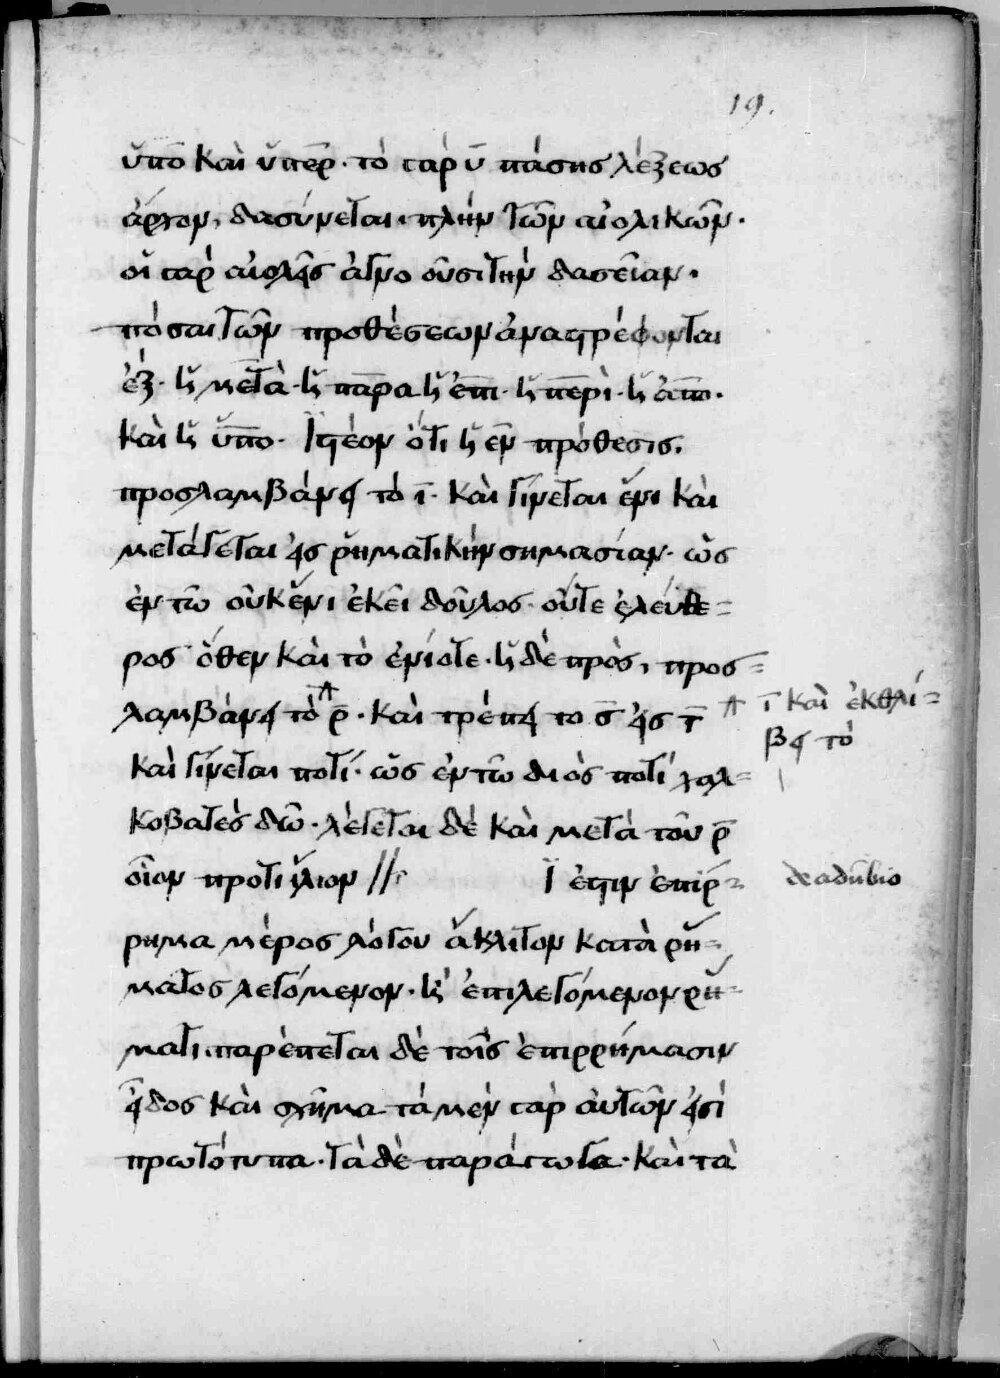 19.
ὑπὸ καὶ ὑπὲρ· τὸ γὰρ ῡ πάσης λέξεως
ἄρχον, δασύνεται· πλὴν τῶν αἰολικῶν·
οἱ γὰρ αἰολεῖς ἀγνοοῦσι τὴν δασεῖαν·
πόσαι τῶν προθέσεων ἀναστρέφονται
ἕξ· ἡ μετὰ· ἡ παρα ἡ ἐπι· ἡ περὶ· ἡ ἀπο·
καὶ ἡ ὑπο· Ἰστέον ὅτι ἡ εν πρόθεσις,
προσλαμβάνει τὸ ῑ· καὶ γίνεται ἔνι καὶ
μετάγεται εἰς ῥηματικὴν σημασίαν· ὡς
ἐν τῶ οὐκ ἔνι ἐκεῖ δοῦλος· οὔτε ἐλεύθε=
ρος ὅθεν καὶ τὸ ἐνίοτε· ἡ δὲ πρὸς, προσ=
λαμβάνει τὸ ρ̄· καὶ τρέπει το σ̄ εἰς τ̄
ῑ καὶ ἐκθλί=
βει τὸ
καὶ γίνεται ποτί· ὡς ἐν τῶ διὸς ποτί χαλ=
κοβατὲς δῶ· λέγεται δὲ καὶ μετὰ τοῦ ρ̄
οἷον προτὶ ἴλιον //
Ἰ ἐστιν ἐπίρ=
deadūbio
ρημα μέρος λόγου ἄκλιτον κατὰ ῥή=
ματος λεγόμενον· ἢ ἐπιλεγόμενον ῥή=
ματι· παρέπεται δὲ τοῖς ἐπιρρήμασιν
εἶδος καὶ σχῆμα τὰ μὲν γὰρ αὐτῶν εἰσὶ
πρωτότυπα· τὰ δὲ παράγωγα· καὶ τὰ